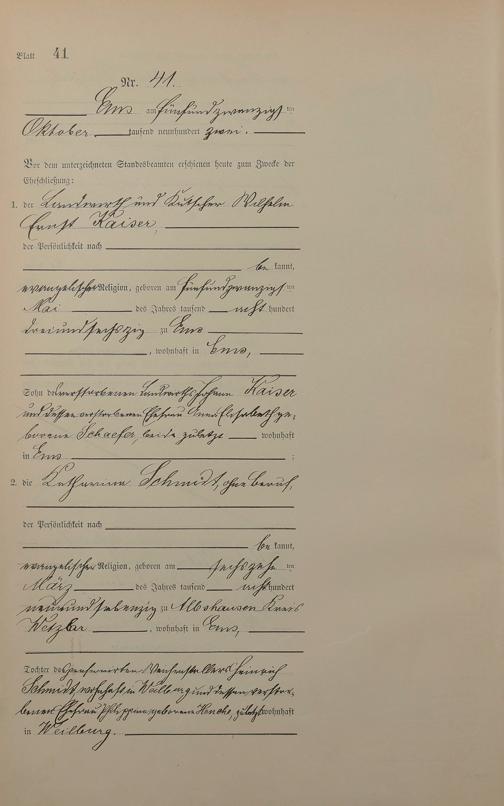 Blatt 41
Nr. 41.
Ems am fünfundzwanzigsten
Oktober tausend neunhundert zwei.
Vor dem unterzeichneten Standesbeamten erschienen heute zum Zwecke der
Eheschließung:
1. der Landwirth und Kutscher Wilhelm
Ernst Kaiser,
der Persönlichkeit nach
be kannt,
evangelischer Religion, geboren am fünfundzwanzigsten
Mai des Jahres tausend acht hundert
dreiundsechszig zu Ems
, wohnhaft in Ems,
Sohn des verstorbenen Landwirths Johann Kaiser
und dessen verstorbenen Ehefrau Elisabeth ge-
borene Schaefer, beide zuletzt wohnhaft
in Ems ;
2. die Katharina Schmidt, ohne Beruf,
der Persönlichkeit nach
be kannt,
evangelischer Religion, geboren am sechszehnten
März des Jahres tausend acht hundert
neunundsiebenzig zu Albshausen Kreis
Wetzlar , wohnhaft in Ems,
Tochter des Heinrich
Schmidt, wohnhaft in Weilburg und dessen verstor-
benen Ehefrau Philippine geborene zuletzt wohnhaft
in Weilburg.